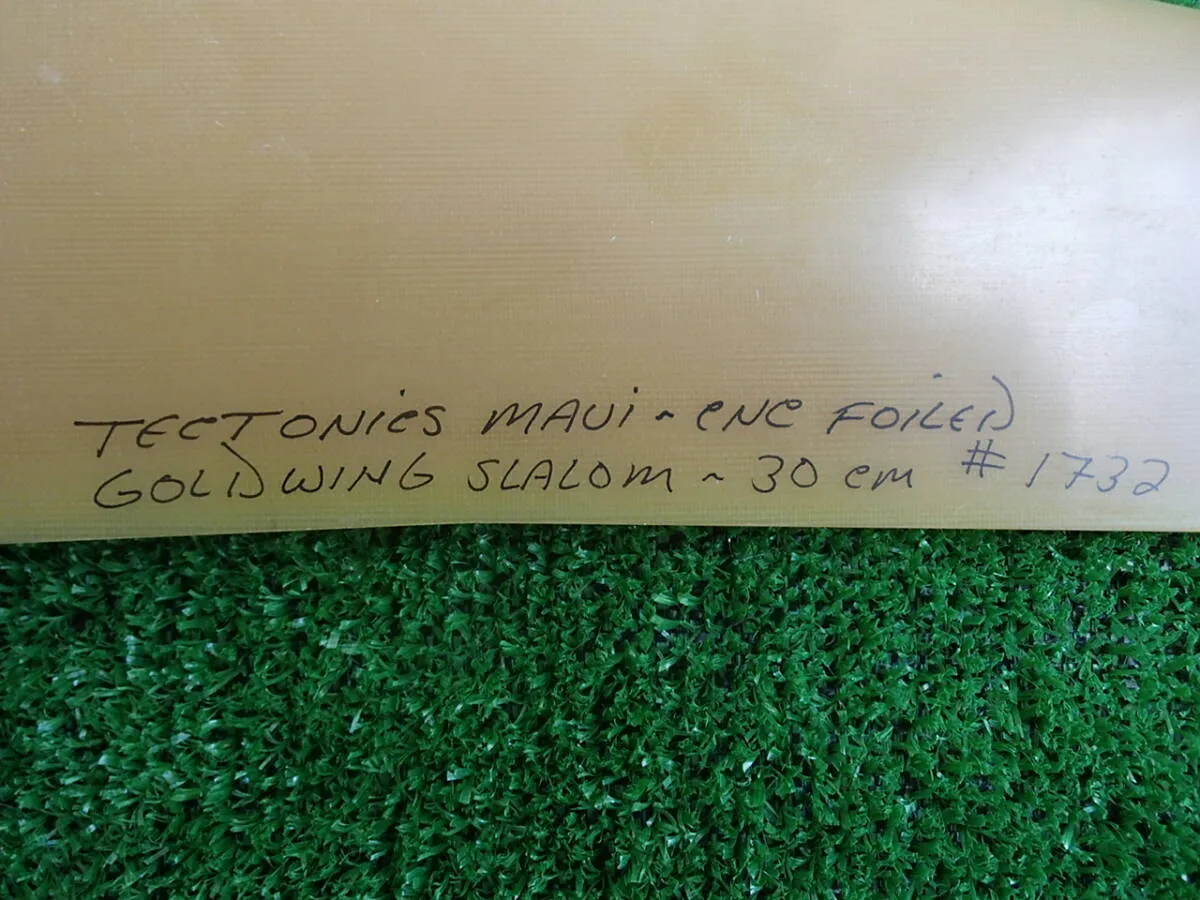 TECTONICS MAUI ~ CNC FOILED
GOLDWING SLALOM ~ 30 cm # 1732